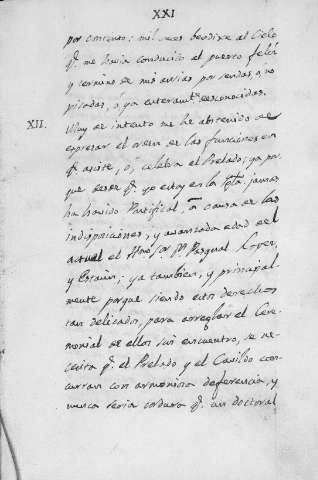 XXI
por contento; mil veces bendixe al Cielo
q.e me havia conducido al puerto feliz
y termino de mis ansias por sendas, q.e no
pisadas, ó ya enteram.te desconocidas.
XII.
Muy de intento me he abstenido de
expresar el orden de las funciones en
q.e asiste, ó celebra el Prelado; ya por-
que desde q.e yo estoy en la Igl.a jamas
ha havido Pontifical, á causa de las
indisposiciones, y avanzada edad del
actual el Ilmo Sor. Dn. Pasqual Lopez,
y Estaun; ya tambien, y principal-
mente porque siendo estos derechos
tan delicados, para arreglar el Cere-
monial de ellos sin encuentro, se ne-
cesita q.e el Prelado y el Cavildo con-
curran con armoniosa deferencia, y
nunca seria cordura q.e un doctoral